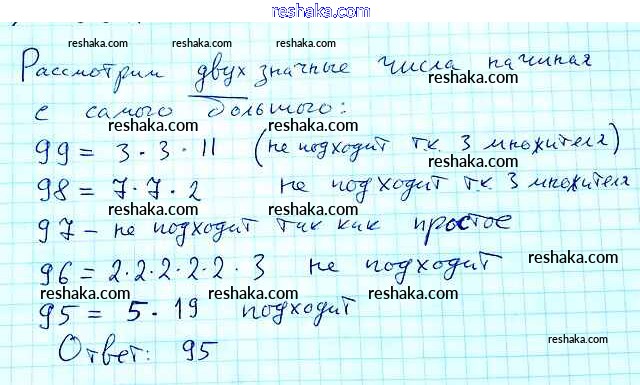 reshaka.com
reshaka.com reshaka.com reshaka.com
Рассмотрим двухзначные числа начиная
reshaka.com
с самого большого:
reshaka.com reshaka.com
99 = 3 · 3 · 11 (не подходит т.к. 3 множителя)
reshaka.com reshaka.com
98 = 7 · 7 · 2 не подходит т.к. 3 множителя
reshaka.com reshaka.com
97 - не подходит так как простое
reshaka.com reshaka.com reshaka.com
96 = 2·2·2·2·2·3 не подходит
reshaka.com reshaka.com reshaka.com
95 = 5 · 19 подходит
reshaka.com reshaka.com
Ответ: 95
reshaka.com